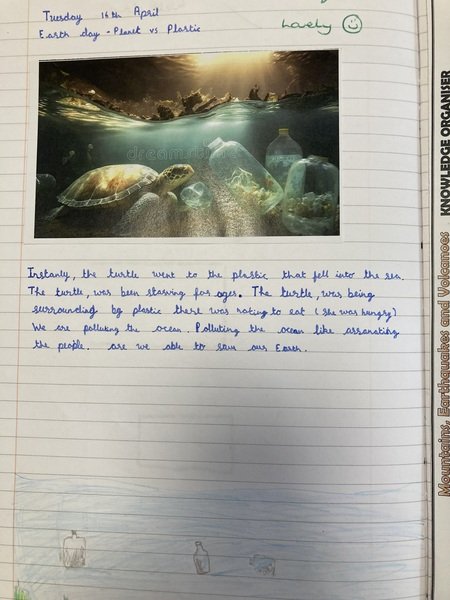 Tuesday 16th April
Lovely
Earth day - Planet vs Plastic
dreamstime
Instanly, the turtle went to the plastic that fell into the sea.
The turtle, was been starving for ages. The turtle, was being
surrounding by plastic there was noting to eat (she was hungry)
We are polluting the ocean. Polluting the ocean like assranating
the people. are we able to save our Earth.
Mountains, Earthquakes and Volcanoes KNOWLEDGE ORGANISER